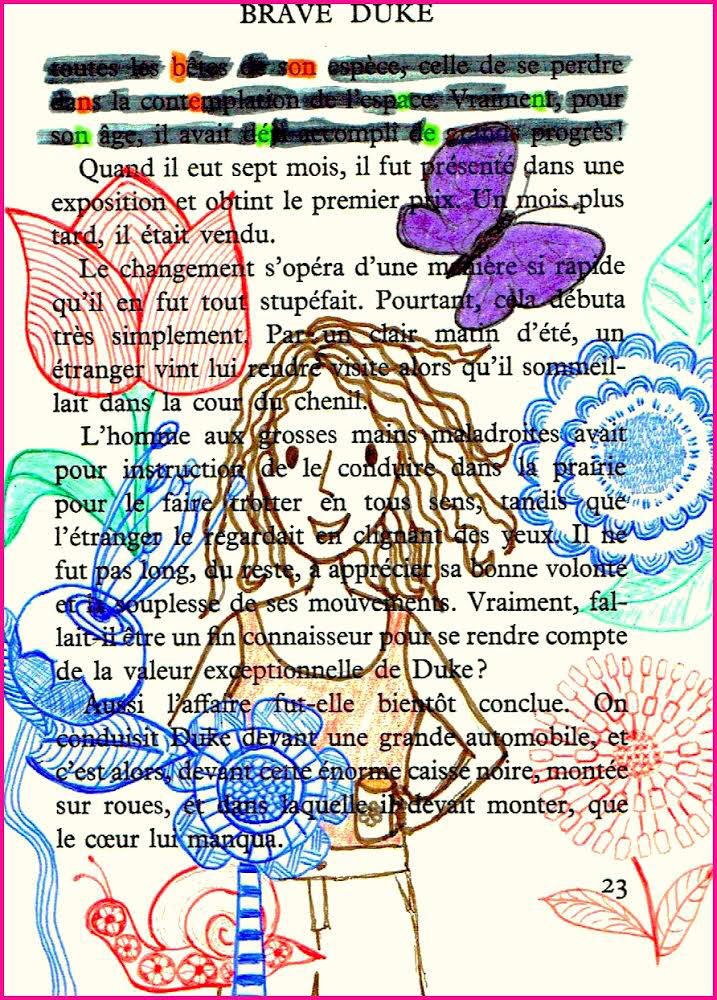 BRAVE DUKE
toutes les bêtes de son espèce, celle de se perdre
dans la contemplation de l'espace. Vraiment, pour
son âge, il avait déjà accompli de grands progrès!
Quand il eut sept mois, il fut présenté dans une
exposition et obtint le premier prix. Un mois plus
tard, il était vendu.
Le changement s'opéra d'une manière si rapide
qu'il en fut tout stupéfait. Pourtant, cela débuta
très simplement. Par un clair matin d'été, un
étranger vint lui rendre visite alors qu'il sommeil-
lait dans la cour du chenil.
L'homme aux grosses mains maladroites avait
pour instruction de le conduire dans la prairie
pour le faire trotter en tous sens, tandis que
l'étranger le regardait en clignant des yeux. Il ne
fut pas long, du reste, à apprécier sa bonne volonté
et la souplesse de ses mouvements. Vraiment, fal-
lait-il être un fin connaisseur pour se rendre compte
de la valeur exceptionnelle de Duke?
Aussi l'affaire fut-elle bientôt conclue. On
conduisit Duke devant une grande automobile, et
c'est alors, devant cette énorme caisse noire, montée
sur roues, et dans laquelle il devait monter, que
le cœur lui manqua.
23